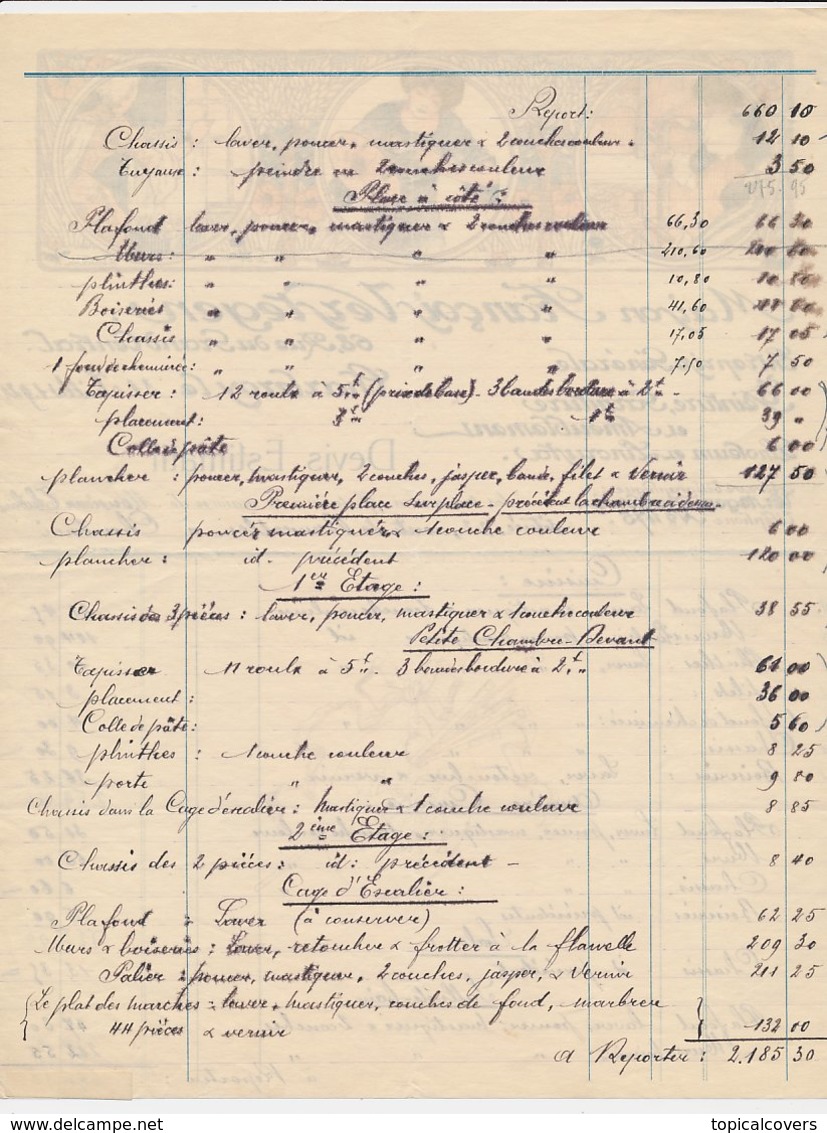 Report: 660 10
Chassis : laver, poncer, mastiquer & 2 couches couleur. 12 10
Tuyaux : peindre en 2 couches couleur 3 50
275.95
Place à côté :
Plafond laver, poncer, mastiquer & 2 couches couleur 66,30 66 30
Murs : " " " " 210,60 210 60
plinthes : " " " " 10,80 10 80
Boiseries " " " " 41,60 41 60
Chassis " " " " 17,05 17 05
1 fond de cheminée : " " " " 7.50 7 50
Tapisser : 12 roulx à 5 f (prix de base) - 3 bandes bordure à 2 f 66 00
placement : 39 "
Colle de pâte 6 00
plancher : poncer, mastiquer, 2 couches, jasper, bande, filet & Vernir 127 50
Première place sur place - précédent la chambre ci dessus -
Chassis poncer mastiquer & 1 couche couleur 6 00
plancher : id. précédent 120 00
1er Etage :
Chassis des 3 pièces : laver, poncer, mastiquer & 1 couche couleur 38 55
Petite Chambre - Devant
Tapisser 11 roulx à 5 f - 3 bandes bordure à 2 f 61 00
placement : 36 00
Colle de pâte : 5 60
plinthes : 1 couche couleur 8 25
porte " " 9 80
Chassis dans la Cage d'escalier : Mastiquer & 1 couche couleur 8 85
2ième Etage :
Chassis des 2 pièces : id : précédent - 8 40
Cage d'Escalier :
Plafond : Laver (à conserver) 62 25
Murs & boiseries : Laver, retoucher & frotter à la flanelle 209 30
Palier : poncer, mastiquer, 2 couches, jasper, & Vernir 211 25
Le plat des marches : laver, mastiquer, couches de fond, marbrer
44 pièces & vernir 132 00
A Reporter : 2.185 30
www.delcampe.net topicalcovers